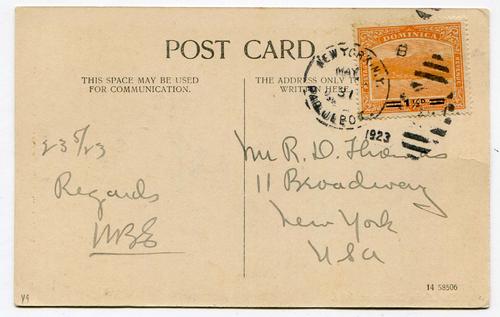 POST CARD.
THIS SPACE MAY BE USED
FOR COMMUNICATION.
THE ADDRESS ONLY TO
WRITTEN HERE
DOMINICA
1½D
NEW YORK N.Y.
MAY
31
PAQUEBOT
1923
B
23 5/23
Regards
Mr R. D. Thomas
11 Broadway
New York
USA
14 58506